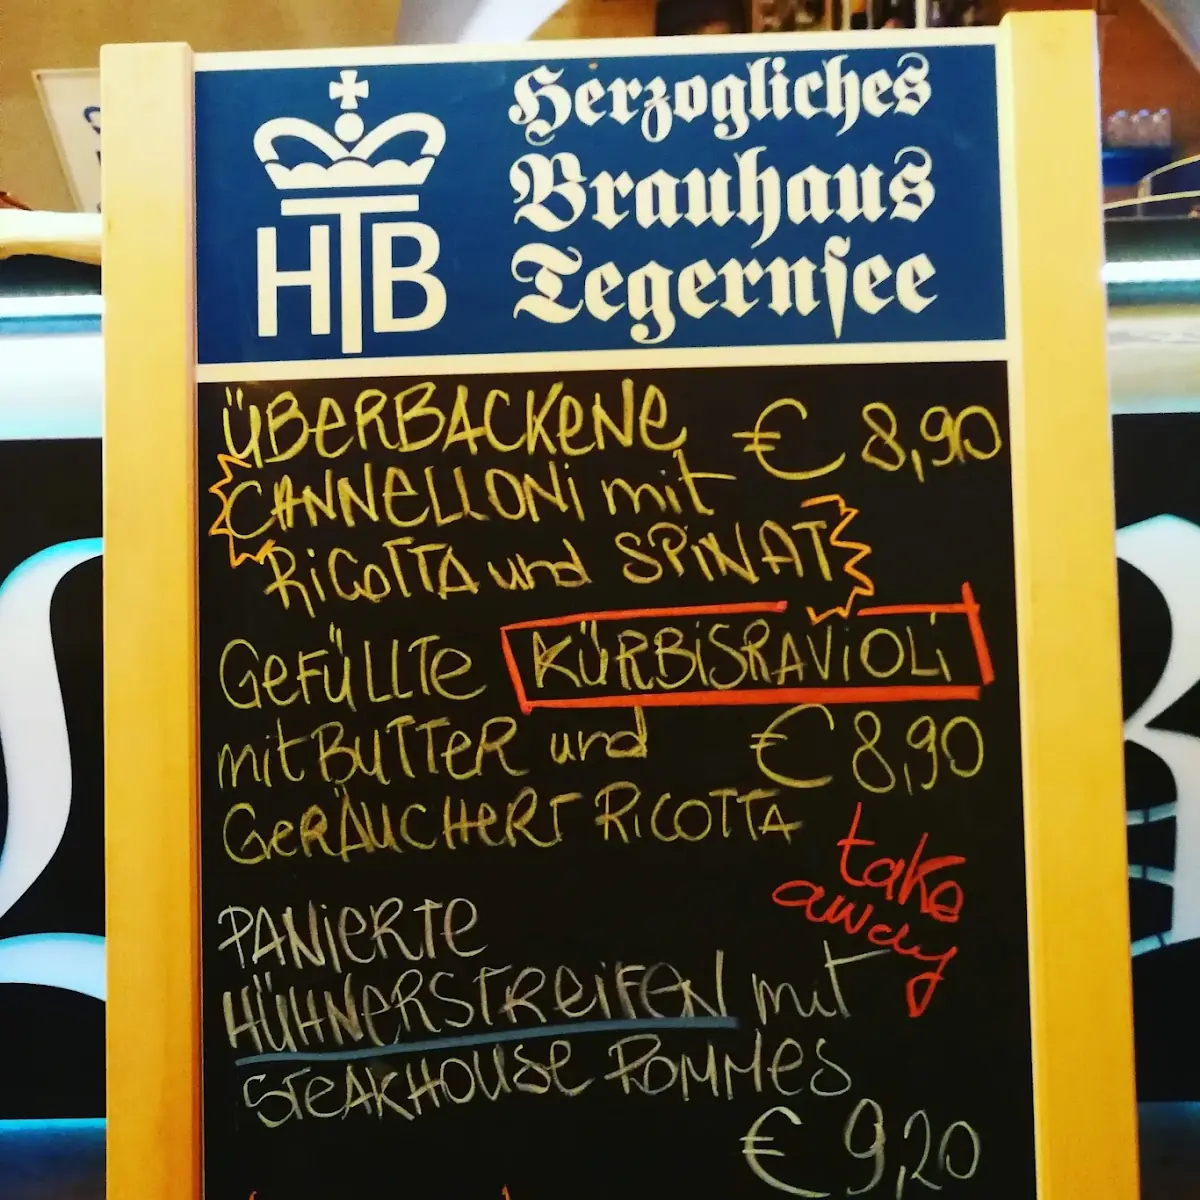 HTB
Herzogliches
Brauhaus
Tegernsee
ÜBERBACKENE € 8,90
CANNELLONI mit
RICOTTA und SPINAT
GEFÜLLTE KÜRBISRAVIOLI
mit BUTTER und € 8,90
GERÄUCHERT RICOTTA
take
away
PANIERTE
HÜHNERSTREIFEN mit
STEAKHOUSE POMMES
€ 9,20